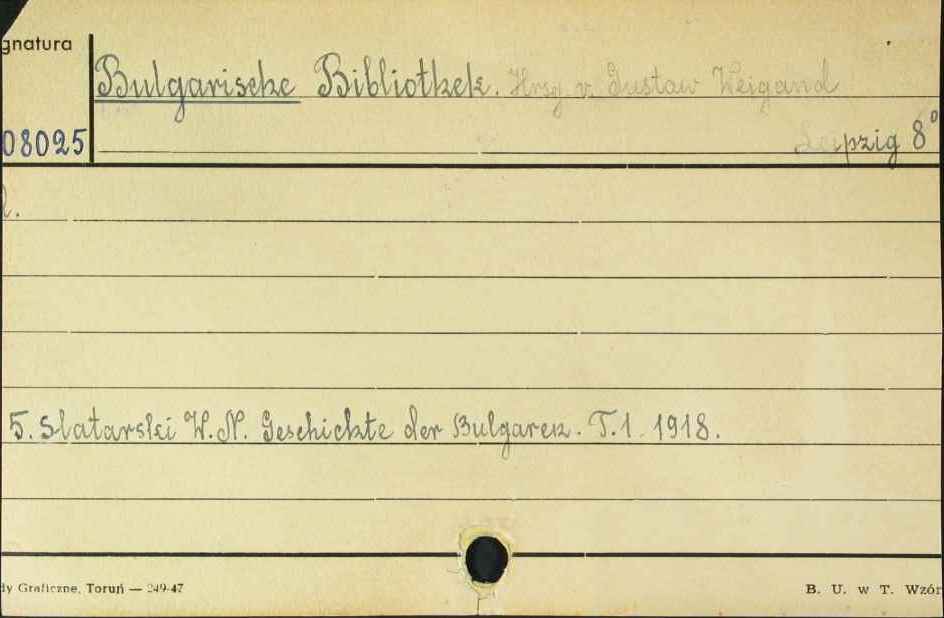 gnatura
Bulgarische Bibliothek. Hrsg v. Gustaw Weigand
08025
Leipzig 8°
5. Slatarski W. N. Geschichte der Bulgaren. T. 1. 1918.
dy Graficzne, Toruń — 249-47
B. U. w T. Wzór